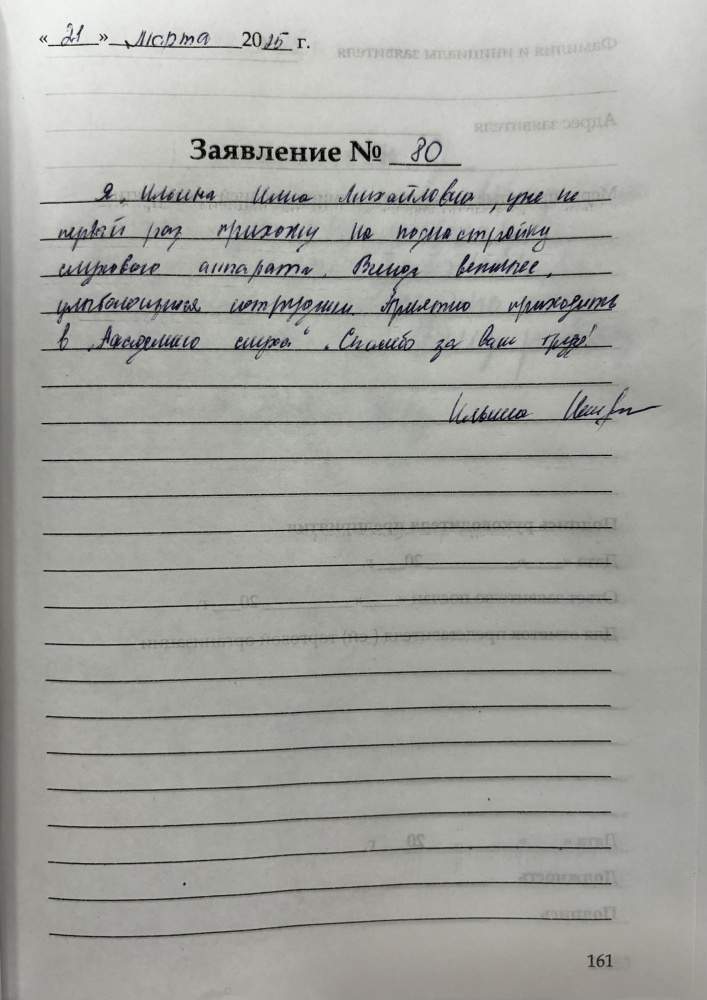 « 21 » марта 2025 г.
Заявление № 80
Я, Ильина Инна Михайловна, уже не
первый раз прихожу на поднастройку
слухового аппарата. Всегда вежливые,
улыбающиеся сотрудники. Приятно приходить
в „Академию слуха“. Спасибо за Ваш труд!
Ильина
161